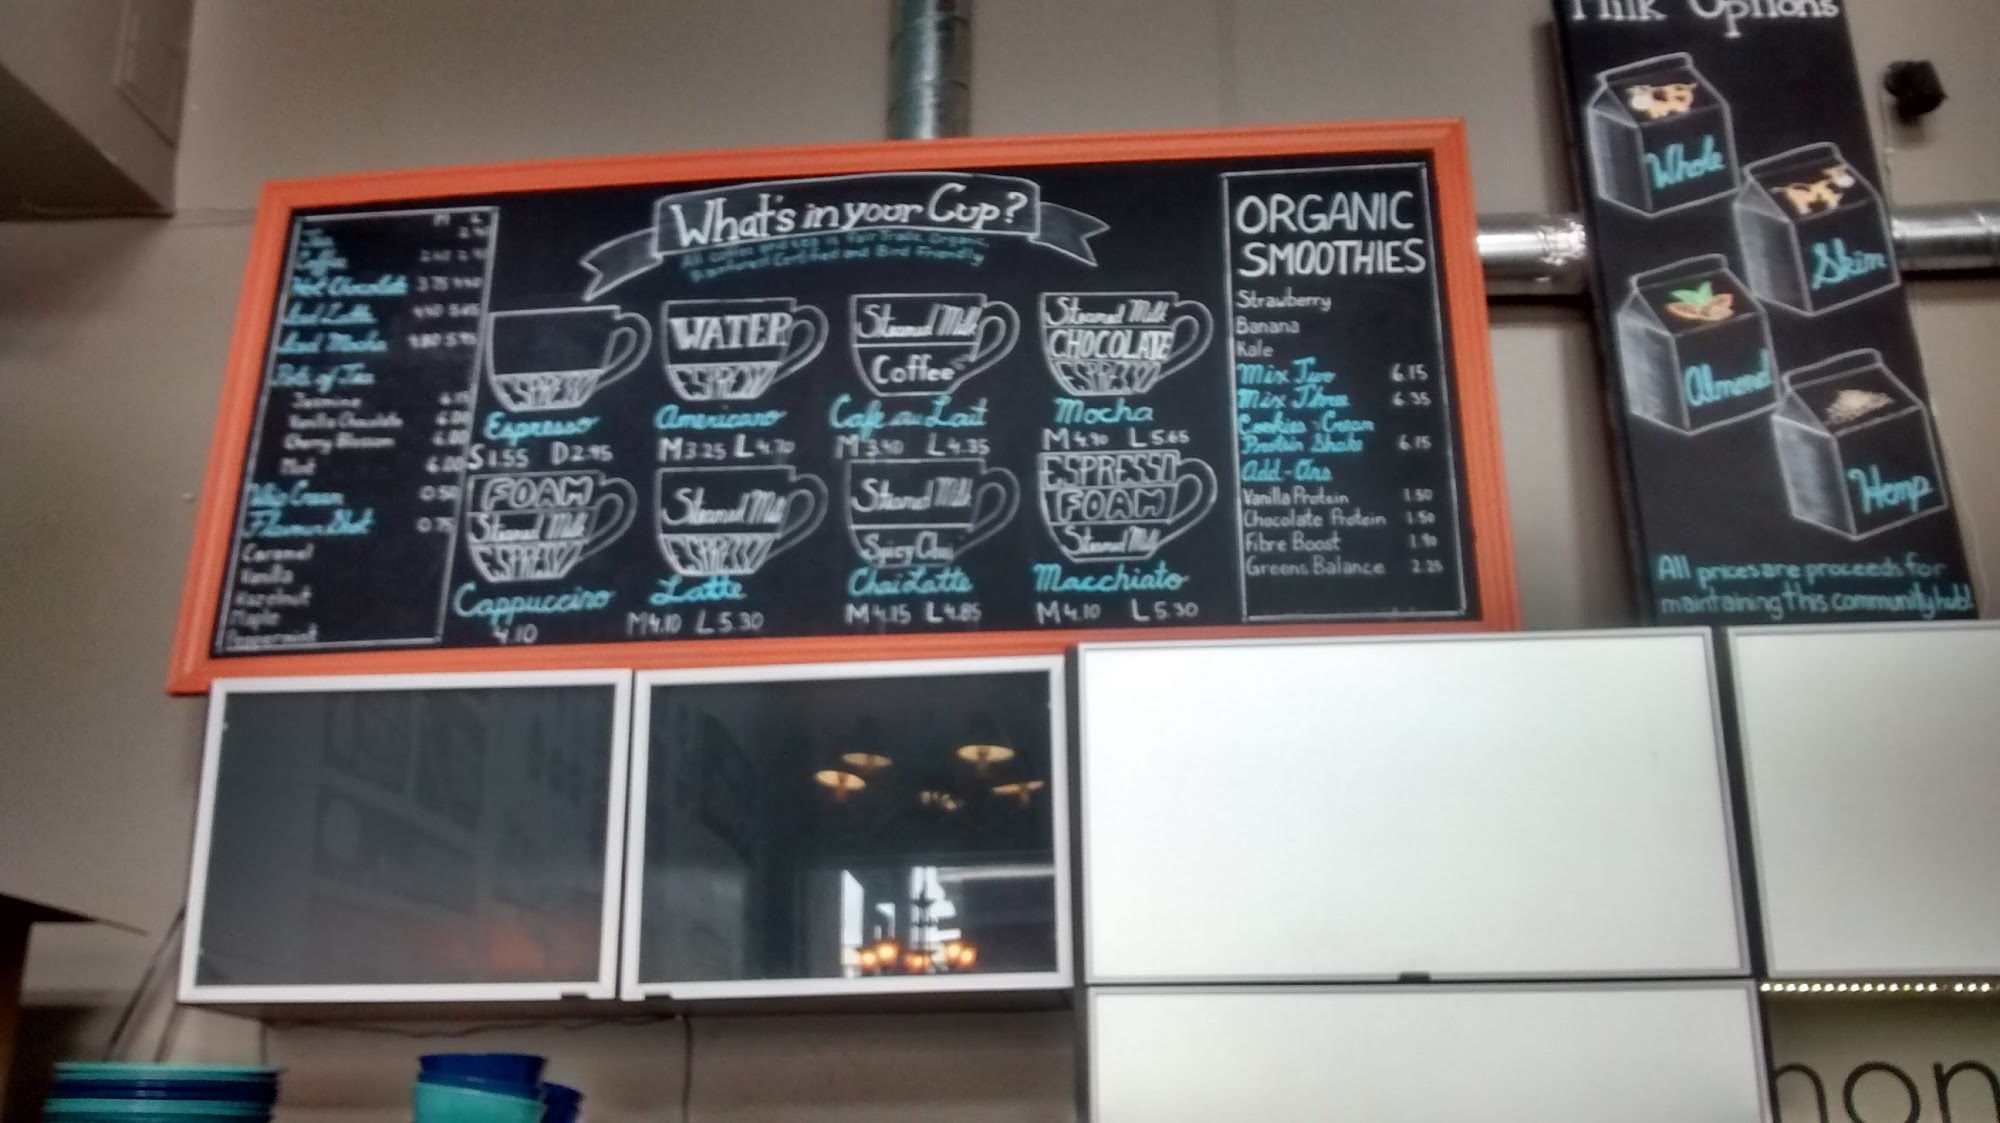 M L
Tea 2.40
Coffee 2.40 2.90
Hot Chocolate 3.75 4.40
Iced Latte 4.40 5.65
Iced Mocha 4.80 5.95
Pots of Tea
Jasmine
Vanilla Chocolate 6.00
Cherry Blossom 6.00
Mint 6.00
Whip Cream 0.50
Flavour Shot 0.75
Caramel
Vanilla
Hazelnut
Maple
Peppermint
What's in your Cup?
All coffee and tea is Fair Trade, Organic,
Rainforest Certified and Bird Friendly
ESPRESSO
Espresso
S 1.55 D 2.95
WATER
ESPRESSO
Americano
M 3.25 L 4.70
Steamed Milk
Coffee
Cafe au Lait
M 3.40 L 4.35
Steamed Milk
CHOCOLATE
ESPRESSO
Mocha
M 4.90 L 5.65
FOAM
Steamed Milk
ESPRESSO
Cappuccino
4.10
Steamed Milk
ESPRESSO
Latte
M 4.10 L 5.30
Steamed Milk
Spicy Chai
Chai Latte
M 4.15 L 4.85
ESPRESSO
FOAM
Steamed Milk
Macchiato
M 4.10 L 5.30
ORGANIC
SMOOTHIES
Strawberry
Banana
Kale
Mix Two 6.15
Mix Three 6.35
Cookies Cream
Protein Shake 6.15
Add-Ons
Vanilla Protein 1.50
Chocolate Protein 1.50
Fibre Boost 1.90
Greens Balance 2.25
Milk Options
Whole
Skim
Almond
Hemp
All prices are proceeds for
maintaining this community hub!
non